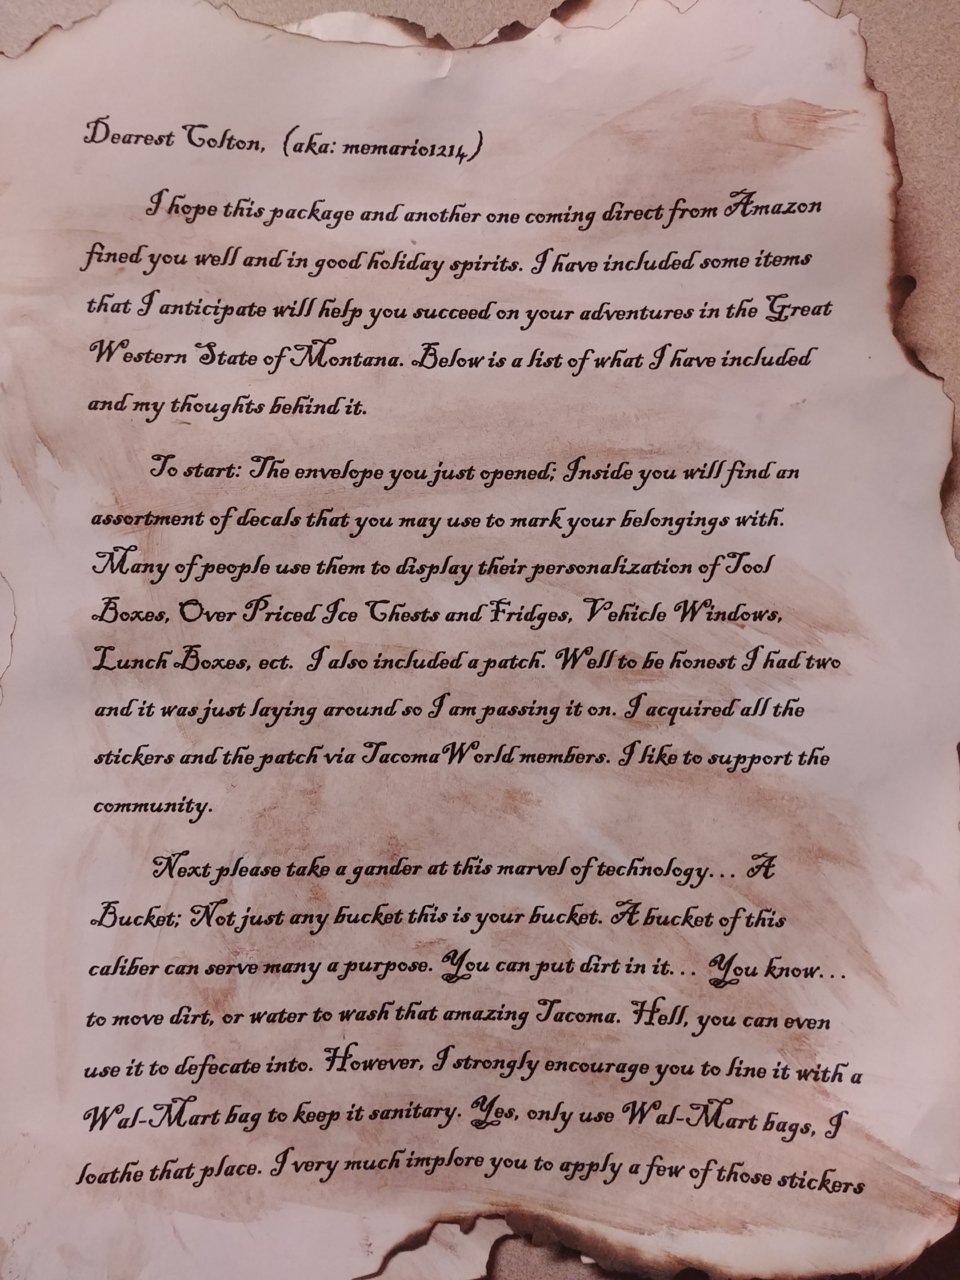 Dearest Colton, (aka: memario1214)
I hope this package and another one coming direct from Amazon
fined you well and in good holiday spirits. I have included some items
that I anticipate will help you succeed on your adventures in the Great
Western State of Montana. Below is a list of what I have included
and my thoughts behind it.
To start: The envelope you just opened; Inside you will find an
assortment of decals that you may use to mark your belongings with.
Many of people use them to display their personalization of Tool
Boxes, Over Priced Ice Chests and Fridges, Vehicle Windows,
Lunch Boxes, ect. I also included a patch. Well to be honest I had two
and it was just laying around so I am passing it on. I acquired all the
stickers and the patch via TacomaWorld members. I like to support the
community.
Next please take a gander at this marvel of technology... A
Bucket; Not just any bucket this is your bucket. A bucket of this
caliber can serve many a purpose. You can put dirt in it... You know...
to move dirt, or water to wash that amazing Tacoma. Hell, you can even
use it to defecate into. However, I strongly encourage you to line it with a
Wal-Mart bag to keep it sanitary. Yes, only use Wal-Mart bags, I
loathe that place. I very much implore you to apply a few of those stickers